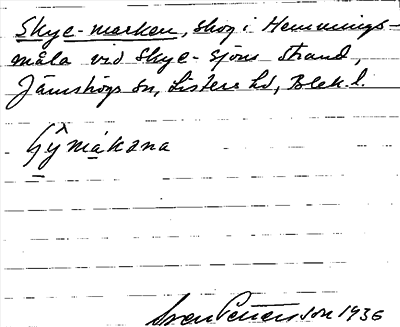 Skye-marken, skog i Hemmings-
måla vid Skye-sjöns strand,
Jämshögs sn, Listers hd, Blek. l.
Sven Pettersson 1936